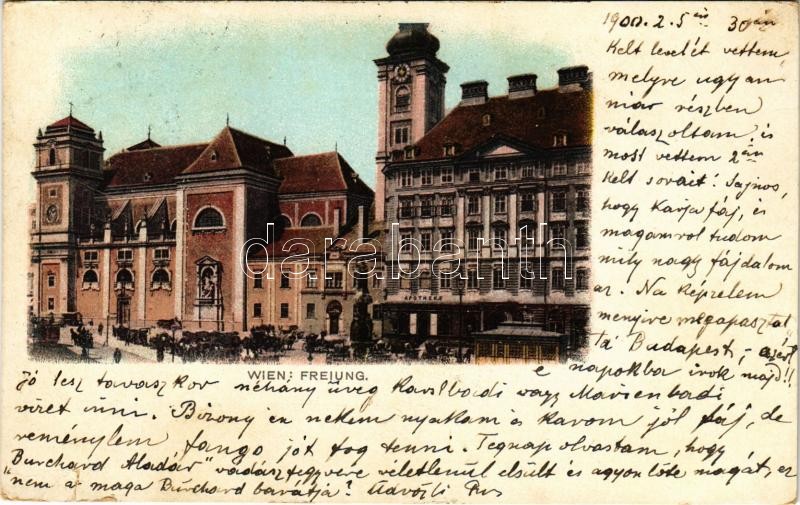 1900. 2. 5én 30án
Kelt levelét vettem,
melyre ugyan
már részben
válaszoltam és
most vettem 2án
kelt sorait. Sajnos,
hogy Karja fáj, és
magamról tudom
mily nagy fájdalom
az. Na képzelem
menyire megapasztal
ta Budapest,
e napokba irok majd!!
APOTHEKE
darabanth.com
WIEN: FREIUNG.
Jó lesz tavaszkor néhány üveg Karlsbadi vagy Marienbadi
vizet inni. Bizony én nekem nyakam is karom jól fáj, de
reménylem fango jót fog tenni. Tegnap olvastam, hogy
"Burchard Aladár" vadászfegyvere véletlenül elsült és agyon lőte magát, ez
nem a maga Burchard barátja? Üdvözli